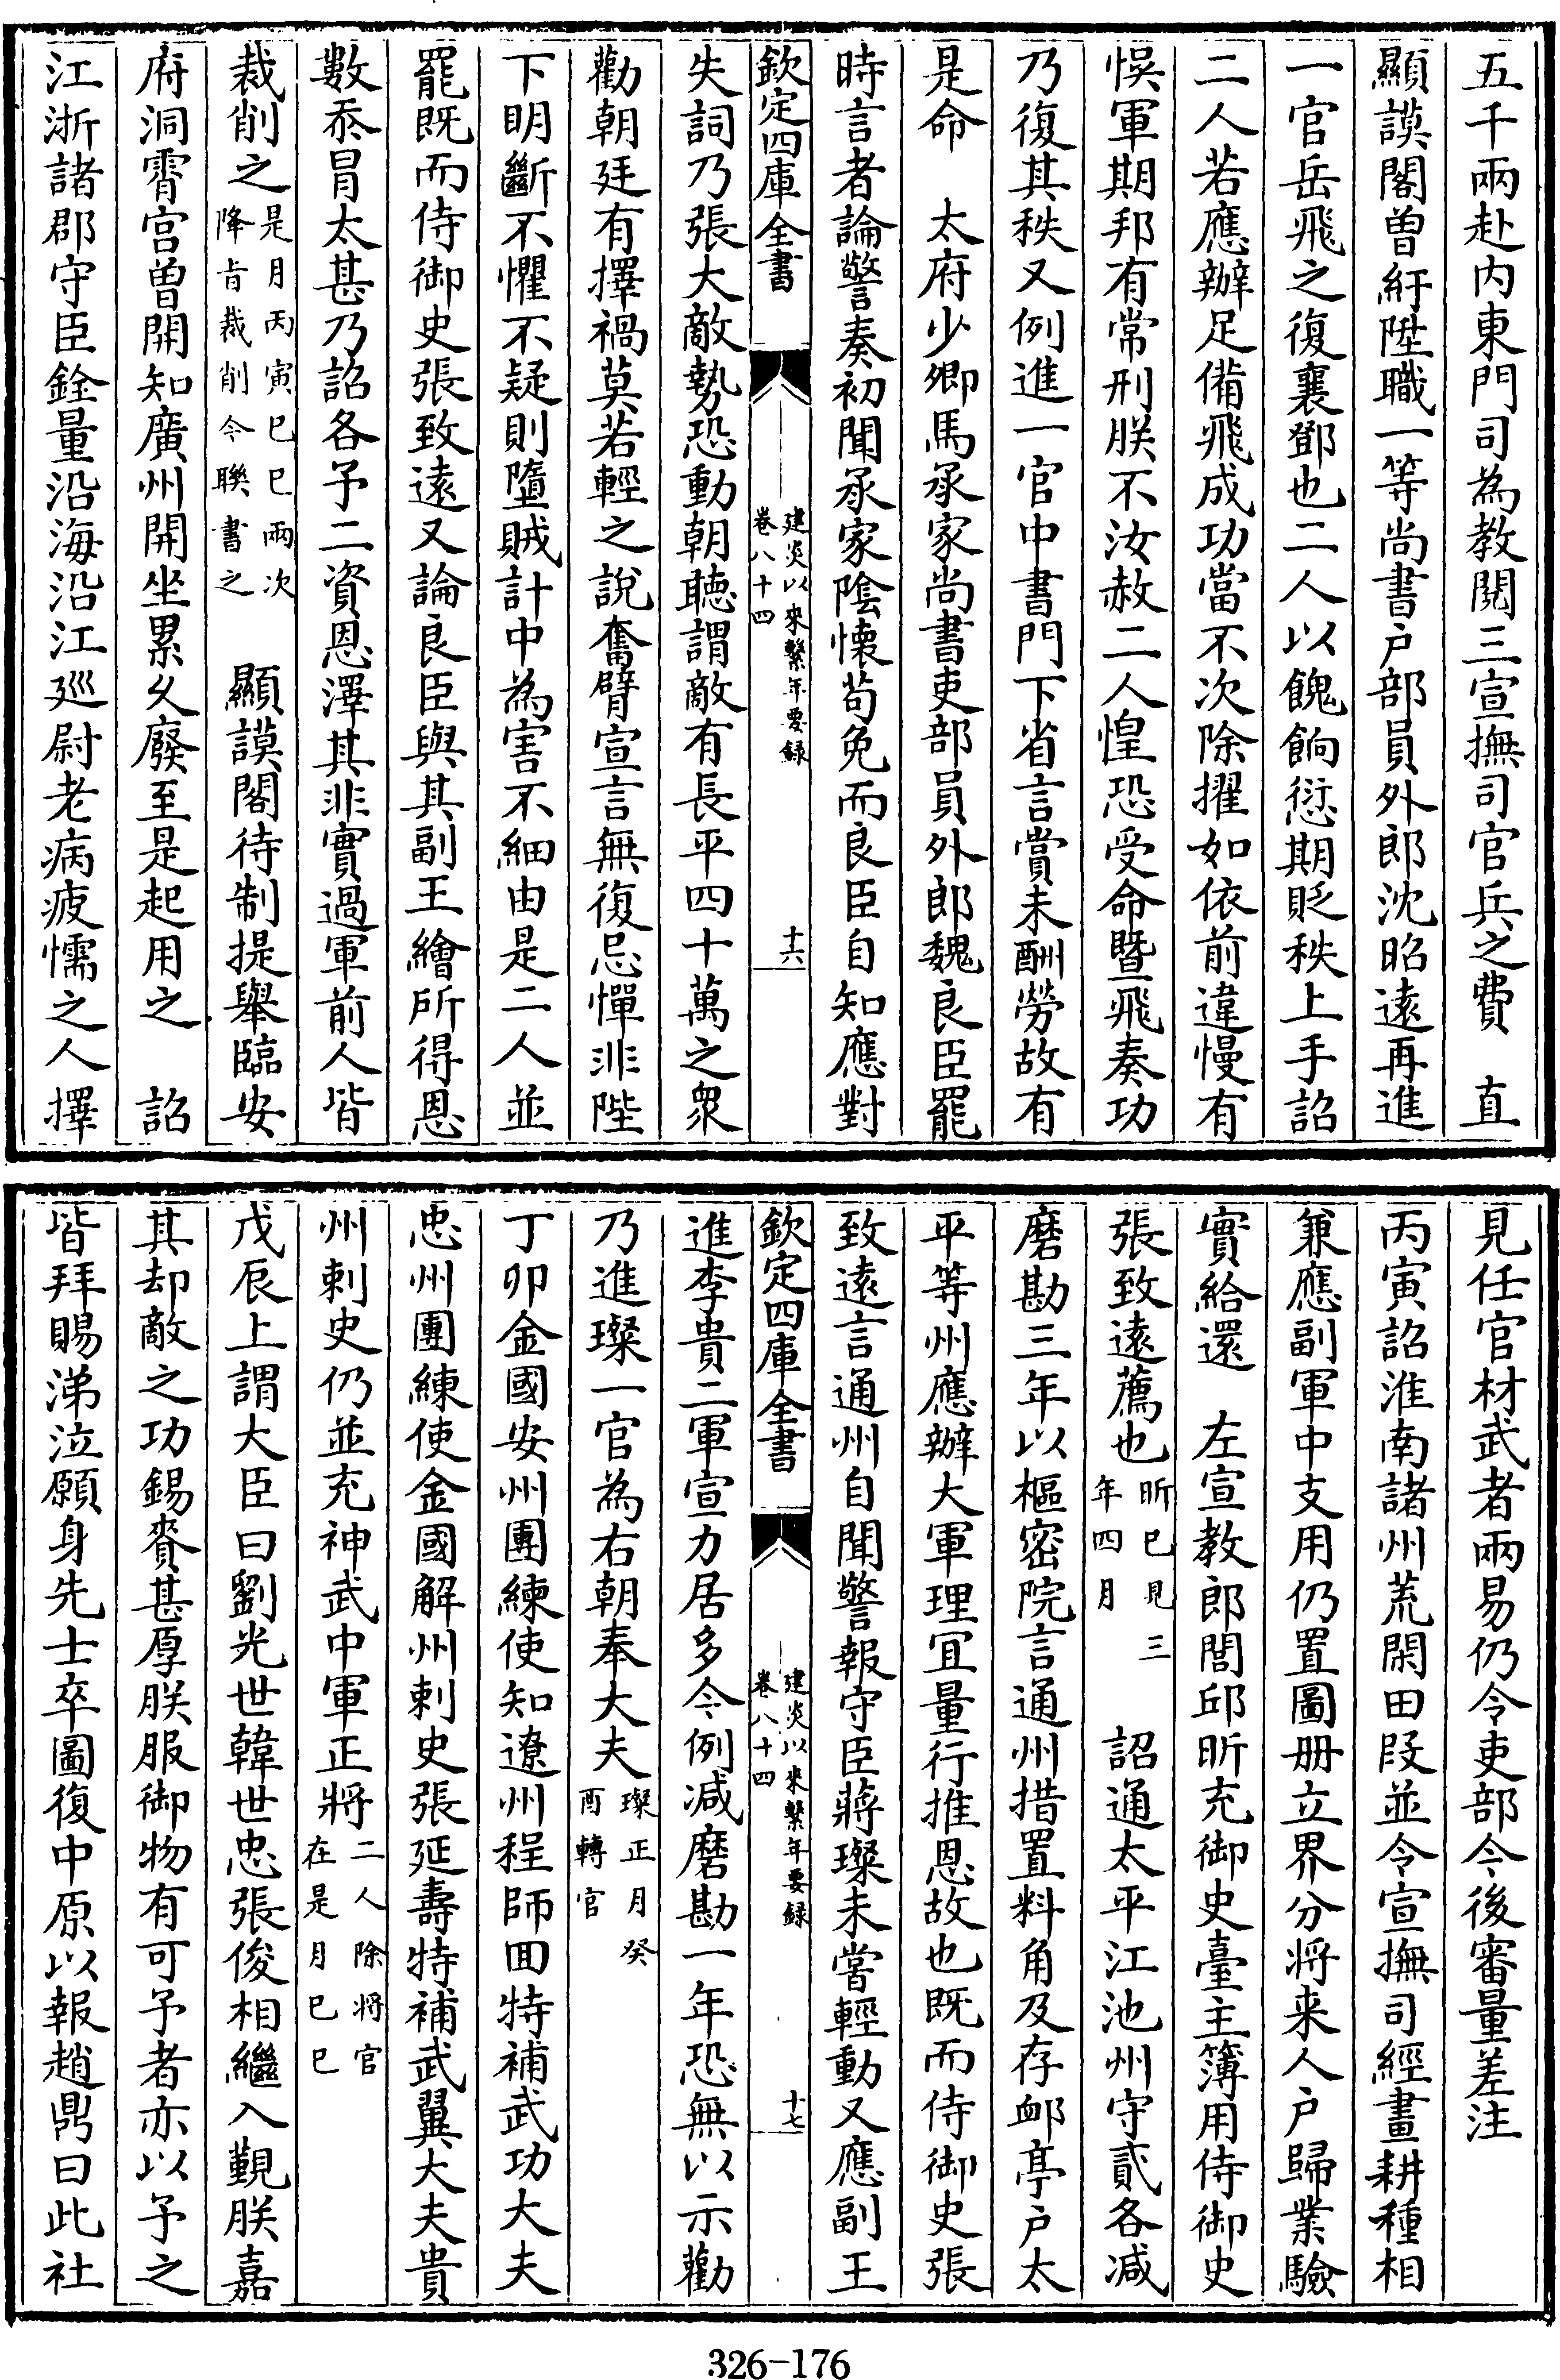 五千兩赴内東門司為教閱三宣撫司官兵之費　直
顯謨閣曽紆陞職一等尚書户部員外郎沈昭逺再進
一官岳飛之復襄鄧也二人以餽餉愆期貶秩上手詔
二人若應辦足備飛成功當不次除擢如依前違慢有
悞軍期邦有常刑朕不汝赦二人惶恐受命暨飛奏功
乃復其秩又例進一官中書門下省言賞未酬勞故有
是命　太府少卿馬承家尚書吏部員外郎魏良臣罷
時言者論警奏初聞承家陰懐苟免而良臣自知應對
欽定四庫全書　建炎以來繫年要録　卷八十四　十六
失詞乃張大敵勢恐動朝聽謂敵有長平四十萬之衆
勸朝廷有擇禍莫若輕之說奮臂宣言無復忌憚非陛
下明斷不懼不疑則墮賊計中為害不細由是二人並
罷既而侍御史張致逺又論良臣與其副王繪所得恩
數忝冒太甚乃詔各予二資恩澤其非實過軍前人皆
裁削之是月丙寅巳巳兩次降旨裁削今聯書之　顯謨閣待制提舉臨安
府洞霄宫曽開知廣州開坐累久廢至是起用之　詔
江浙諸郡守臣銓量沿海沿江廵尉老病疲懦之人擇
見任官材武者兩易仍令吏部今後審量差注
丙寅詔淮南諸州荒閑田段並令宣撫司經畫耕種相
兼應副軍中支用仍置圖册立界分將来人户歸業驗
實給還　左宣教郎閭邱昕充御史臺主簿用侍御史
張致逺薦也昕巳見三年四月　詔通太平江池州守貳各減
磨勘三年以樞密院言通州措置料角及存䘏亭户太
平等州應辦大軍理宜量行推恩故也既而侍御史張
致逺言通州自聞警報守臣蔣璨未嘗輕動又應副王
欽定四庫全書　建炎以來繫年要録　卷八十四　十七
進李貴二軍宣力居多今例減磨勘一年恐無以示勸
乃進璨一官為右朝奉大夫璨正月癸酉轉官
丁卯金國安州團練使知遼州程師回特補武功大夫
忠州團練使金國解州刺史張延壽特補武翼大夫貴
州刺史仍並充神武中軍正將二人除將官在是月巳巳
戊辰上謂大臣曰劉光世韓世忠張俊相繼入覲朕嘉
其却敵之功錫賚甚厚朕服御物有可予者亦以予之
皆拜賜涕泣願身先士卒圖復中原以報趙鼎曰此社
326-176